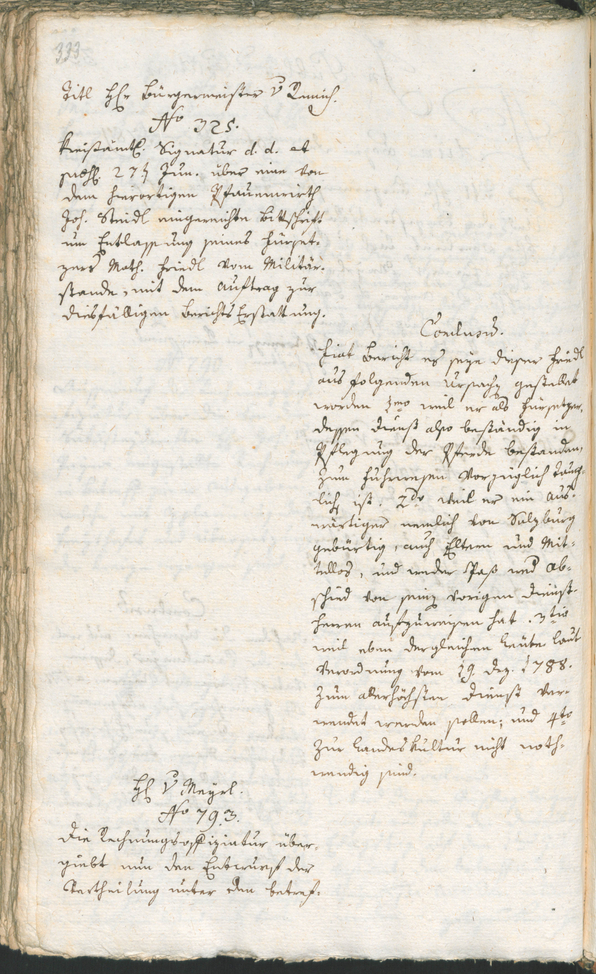 333
Titl Hr Bürgermeister v Remich.
No 325.
Kreisämtl. Signatur d. d. et
praes. 27t Jun. über eine von
dem hierortigen Pfauenwirth
Joh. Steidl eingereichte Bittschrift
um Entlassung seines Fürset-
zers Math. Friedl vom Militär-
stande, mit dem Auftrag zur
diesfälligen Berichts Erstattung.
Conclusum.
Fiat Bericht es seye dieser Friedl
aus folgenden Ursachen gestellet
worden 1mo weil er als Fürsetzer,
dessen Dienst also beständig in
Pflegung der Pferde bestanden,
zum Fuhrwesen vorzüglich taug-
lich ist. 2do weil er ein Aus-
wärtiger nemlich von Salzburg
gebürtig, auch Eltern und Mit-
tellos, und weder Paß noch Ab-
schied von seinen vorigen Dienst-
herren aufzuweisen hat. 3tio
weil eben dergleichen Leute laut
Verordnung vom 19. Dez. 1788.
zum allerhöchsten Dienst ver-
wendet werden sollen; und 4to
zur Landeskultur nicht noth-
wendig sind.
Hr v Mayrl.
No 793.
Die Rechnungsoffiziatur über-
giebt nun den Entwurf der
Vertheilung unter den betref-